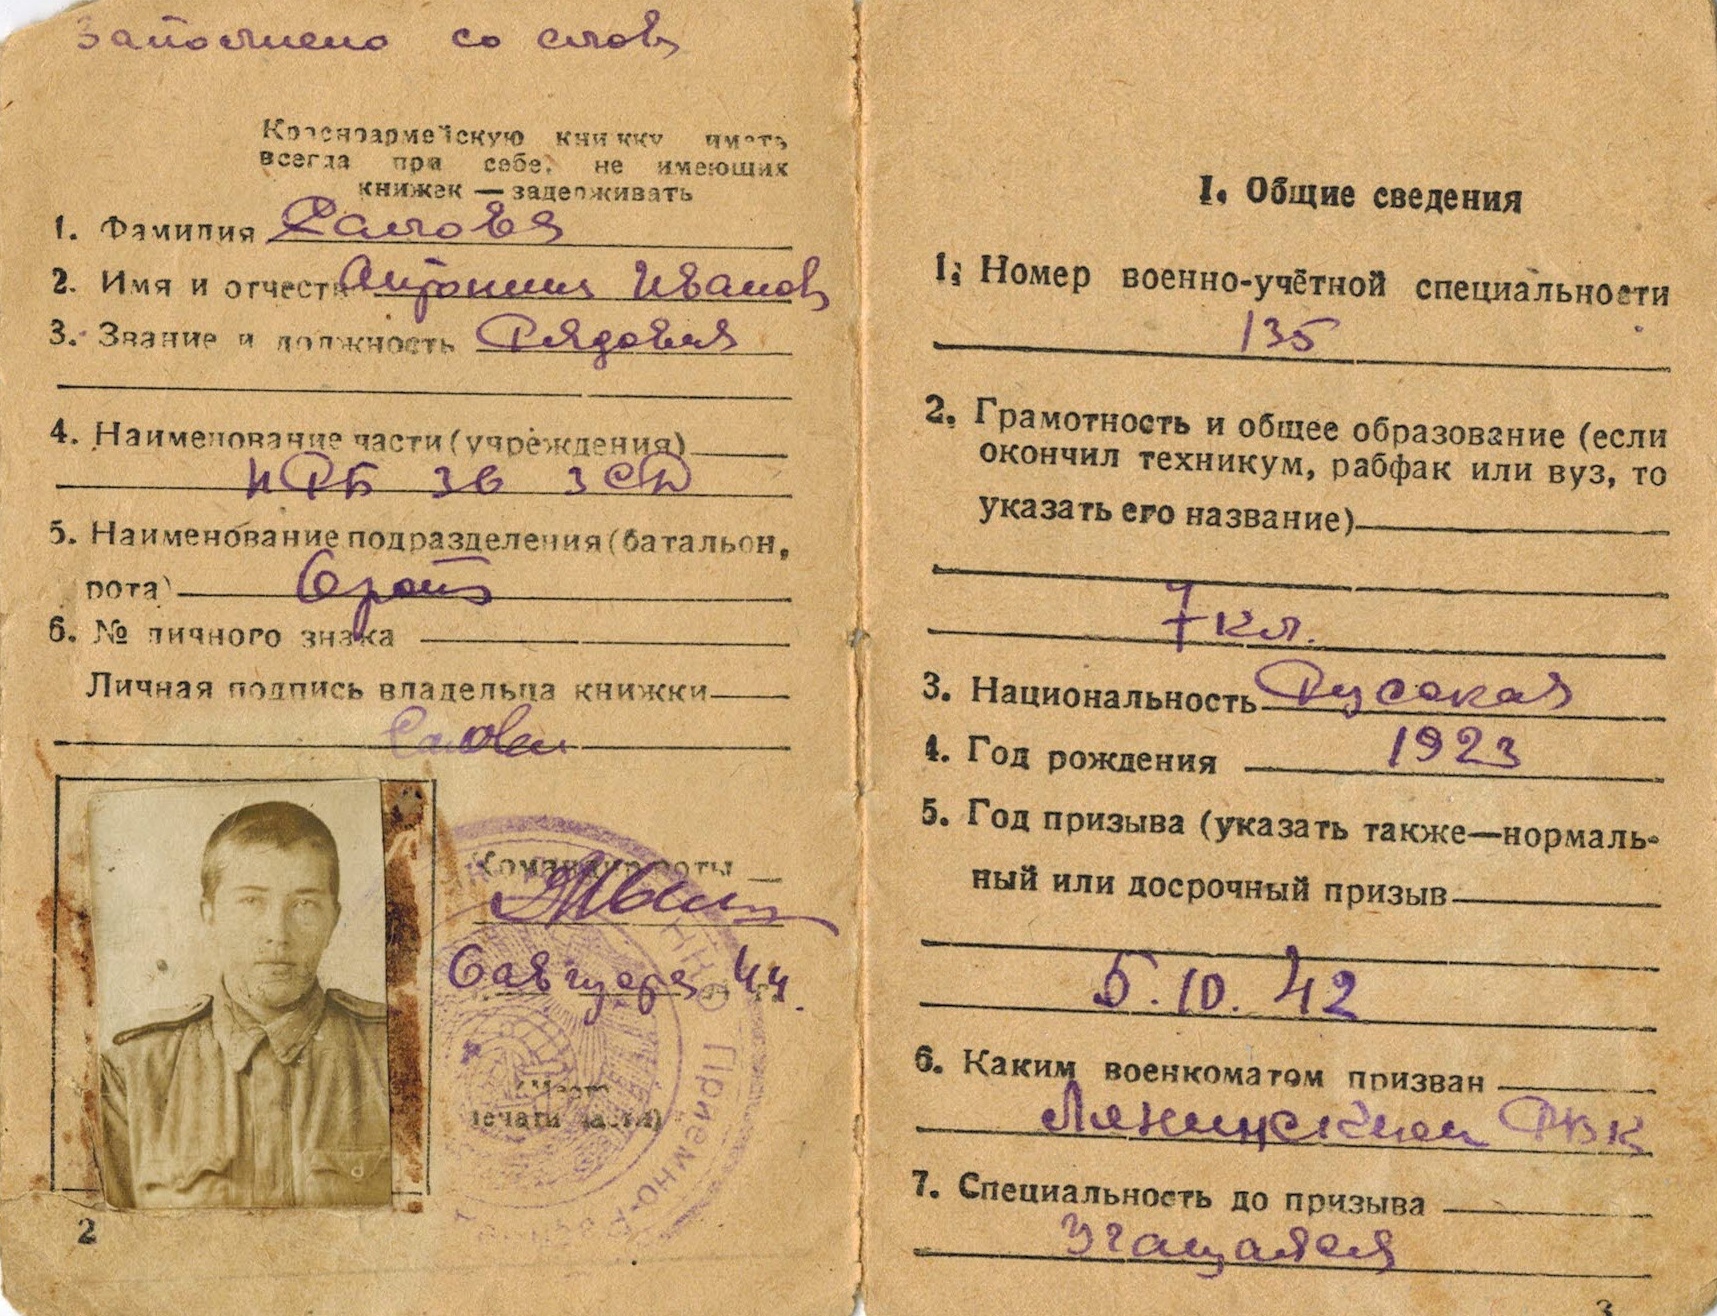 Заполнено со слов
Красноармейскую книжку иметь
всегда при себе, не имеющих
книжек — задерживать
1. Фамилия
2. Имя и отчество Антонина Иванов
3. Звание и должность Рядовая
4. Наименование части (учреждения)
ПФБ 36 ЗСД
5. Наименование подразделения (батальон,
рота) 6 рота
6. № личного знака
Личная подпись владельца книжки
Командир роты
6 августа 44 г.
(Место
печати части)
Приемно-
2
I. Общие сведения
1. Номер военно-учётной специальности
135
2. Грамотность и общее образование (если
окончил техникум, рабфак или вуз, то
указать его название)
7 кл.
3. Национальность Русская
4. Год рождения 1923
5. Год призыва (указать также—нормаль-
ный или досрочный призыв
5.10.42
6. Каким военкоматом призван
РВК
7. Специальность до призыва
Учащаяся
3